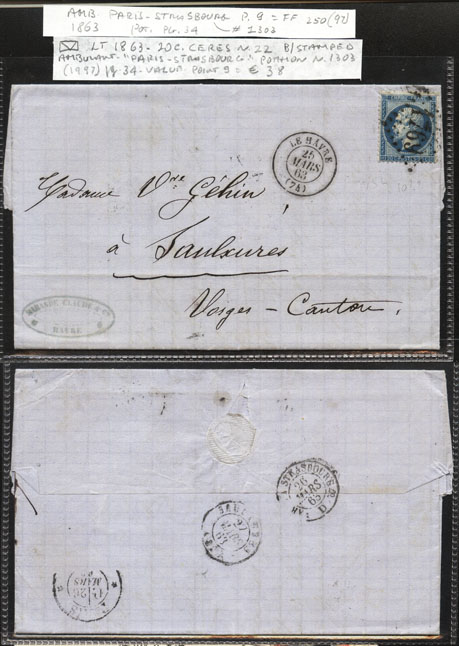 AMB. PARIS-STRASBOURG P. 9 = FF 250 (97)
1863 POT. PG. 34 # 1303
LT 1863-20C. CERES N. 22 B/STAMPED
AMBULANT "PARIS-STRASBOURG" POTHION N. 1303
(1997) pg. 34-VALUE POINT 9 = € 38
LE HAVRE
25
MARS
63
(74)
1769
Madame Vve Géhin
à Saulxures
Vosges-Canton.
CLAUDE & CIE
HAVRE
A STRASBOURG
26
MARS
63
26
MARS